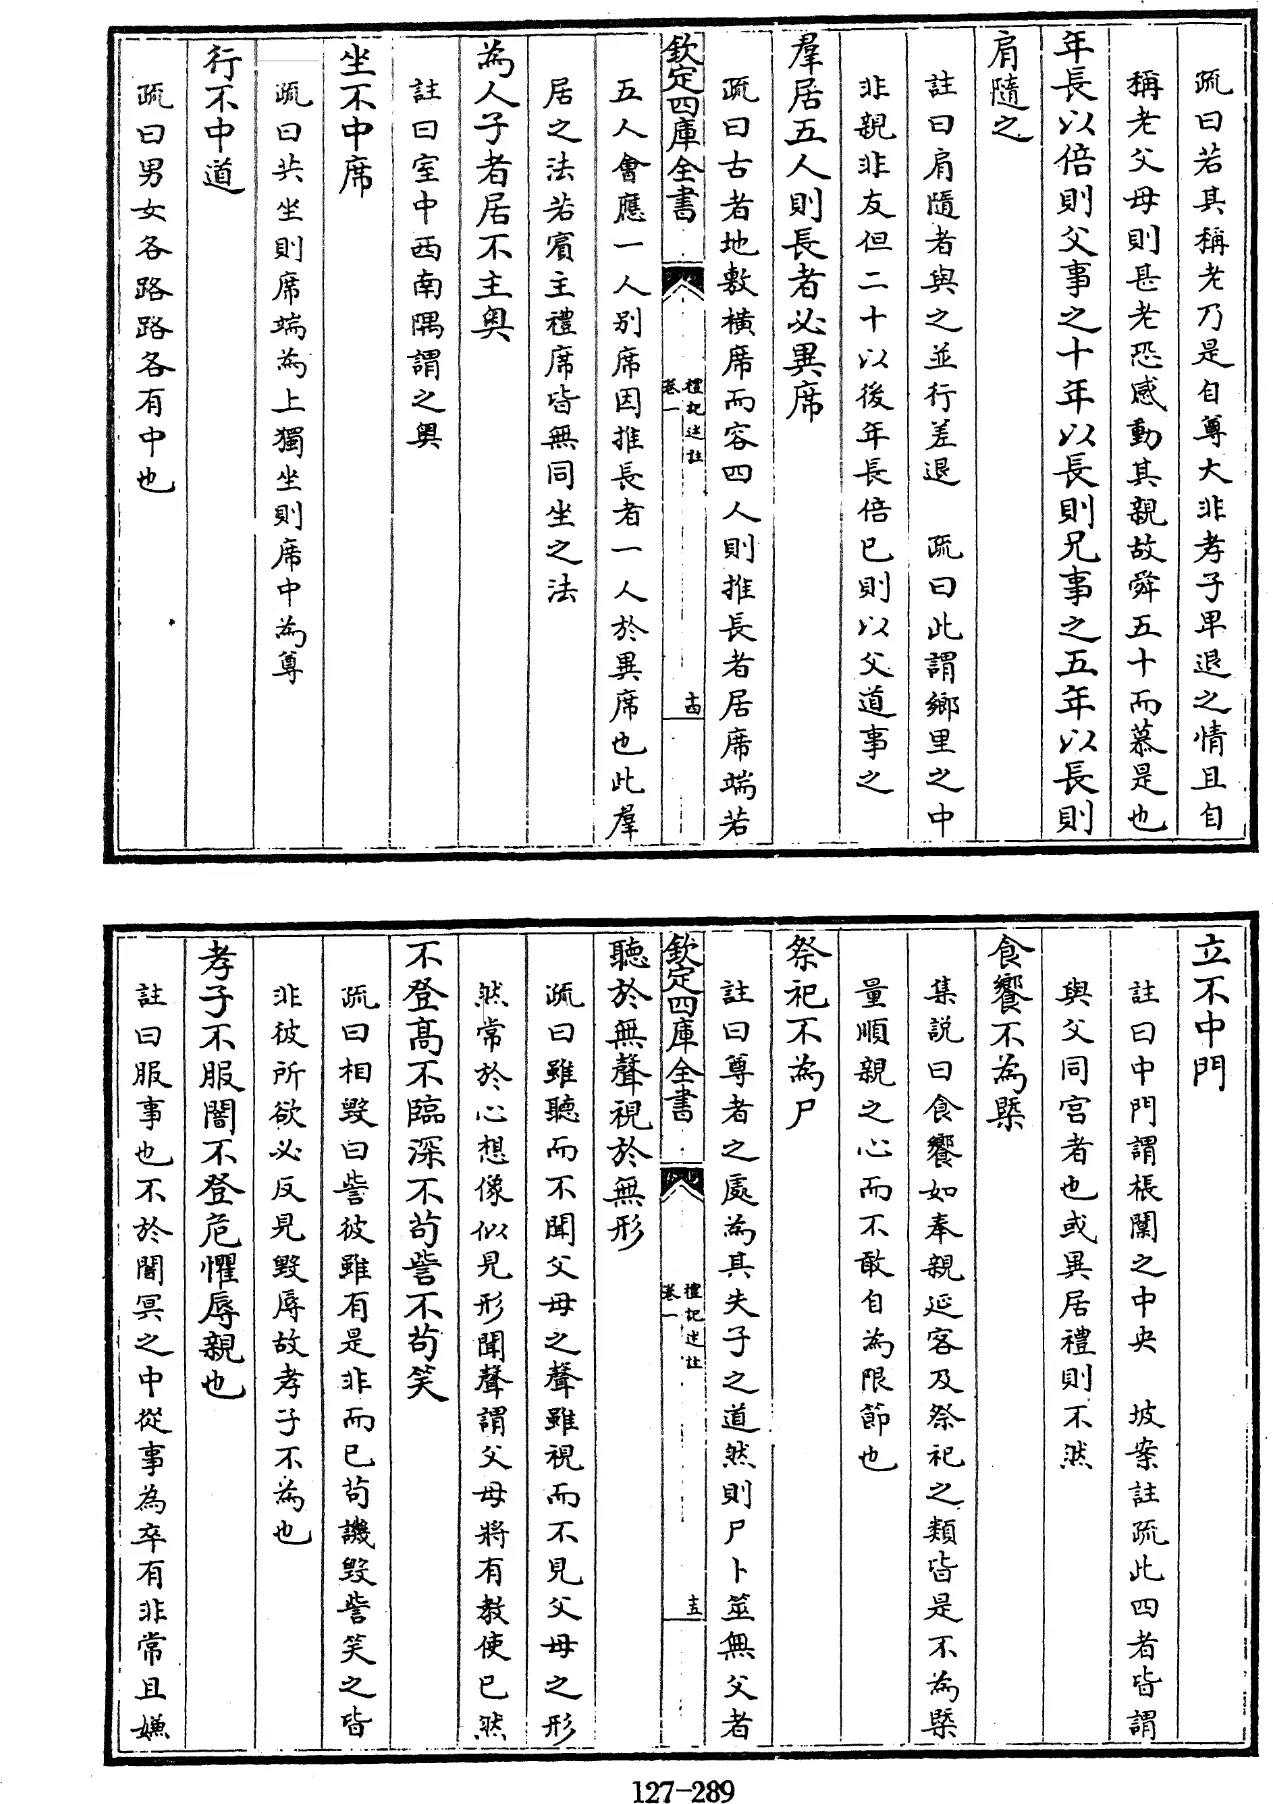 疏曰若其稱老乃是自尊大非孝子卑退之情且自
稱老父母則甚老恐感動其親故舜五十而慕是也
年長以倍則父事之十年以長則兄事之五年以長則
肩隨之
註曰肩隨者與之並行差退　疏曰此謂鄉里之中
非親非友但二十以後年長倍已則以父道事之
羣居五人則長者必異席
疏曰古者地敷橫席而容四人則推長者居席端若
欽定四庫全書
禮記述註
卷一
十四
五人會應一人別席因推長者一人於異席也此羣
居之法若賓主禮席皆無同坐之法
為人子者居不主奧
註曰室中西南隅謂之奧
坐不中席
疏曰共坐則席端為上獨坐則席中為尊
行不中道
疏曰男女各路路各有中也
立不中門
註曰中門謂棖闑之中央　坡案註疏此四者皆謂
與父同宮者也或異居禮則不然
食饗不為槩
集說曰食饗如奉親延客及祭祀之類皆是不為槩
量順親之心而不敢自為限節也
祭祀不為尸
註曰尊者之處為其失子之道然則尸卜筮無父者
欽定四庫全書
禮記述註
卷一
十五
聽於無聲視於無形
疏曰雖聽而不聞父母之聲雖視而不見父母之形
然常於心想像似見形聞聲謂父母將有教使已然
不登高不臨深不茍訾不茍笑
疏曰相毀曰訾彼雖有是非而已茍譏毀訾笑之皆
非彼所欲必反見毀辱故孝子不為也
孝子不服闇不登危懼辱親也
註曰服事也不於闇冥之中從事為卒有非常且嫌
127-289